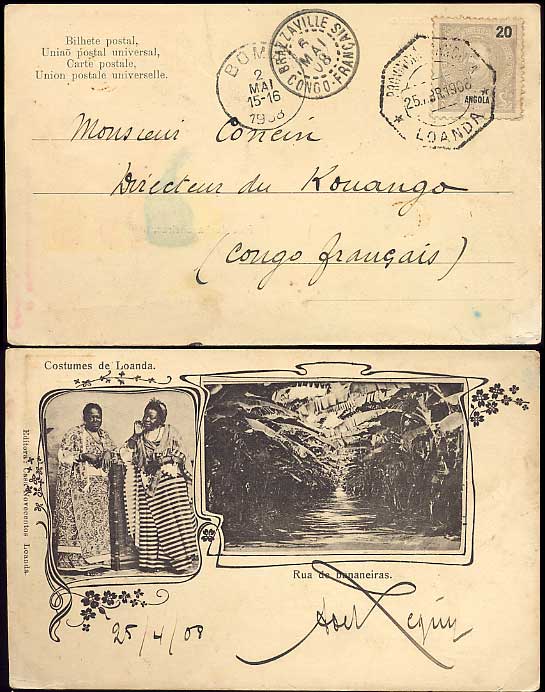 Bilhete postal,
Uniaõ postal universal,
Carte postale,
Union postale universelle.
BOMA
2
MAI
15-16
1908
BRAZZAVILLE
CONGO-FRANÇAIS
6
MAI
08
20
ANGOLA
25 ABR 1908
LOANDA
Monsieur
Directeur du Kouango
(Congo français)
Costumes de Loanda.
Editora: Casa Novecentos Loanda
Rua de bananeiras.
25/4/08